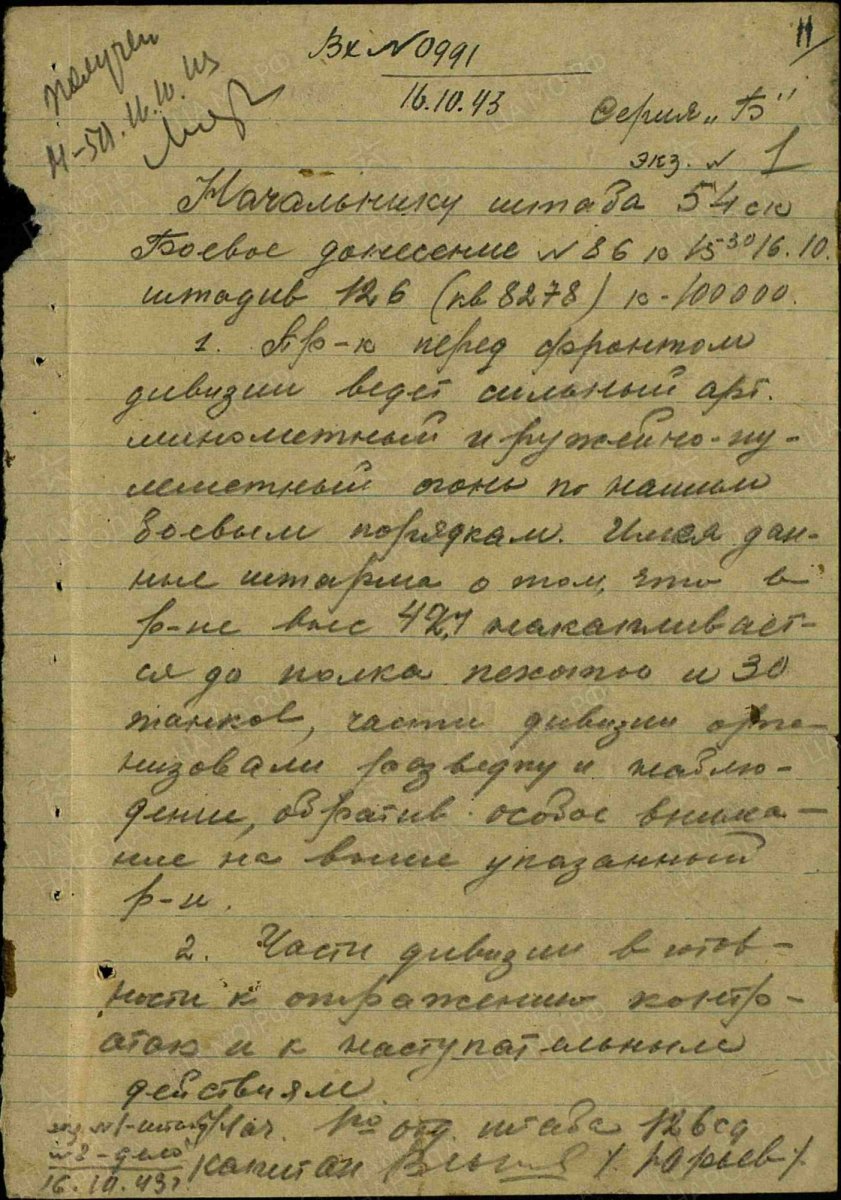 11
Вх N 0991
16.10.43
получен
16.10.43
Серия „Б"
экз. N 1
Начальнику штаба 54 ск
Боевое донесение N 86 к 15³⁰ 16.10.
штадив 126 (кв 8278) к-100000.
1. Пр-к перед фронтом
дивизии ведет сильный арт.
минометный и ружейно-пу-
леметный огонь по нашим
боевым порядкам. Имея дан-
ные штарма о том, что в
р-не выс накапливает-
ся до полка пехоты и 30
танков, части дивизии орга-
низовали разведку и наблю-
дение, обратив особое внима-
ние на выше указанный
р-н.
2. Части дивизии в готов-
ности к отражению контр-
атак и к наступательным
действиям.
Нач. 1го отд. штаба 126 сд
капитан /Юрьев/
экз. N 1-штаб
N 2-дело
16.10.43г.